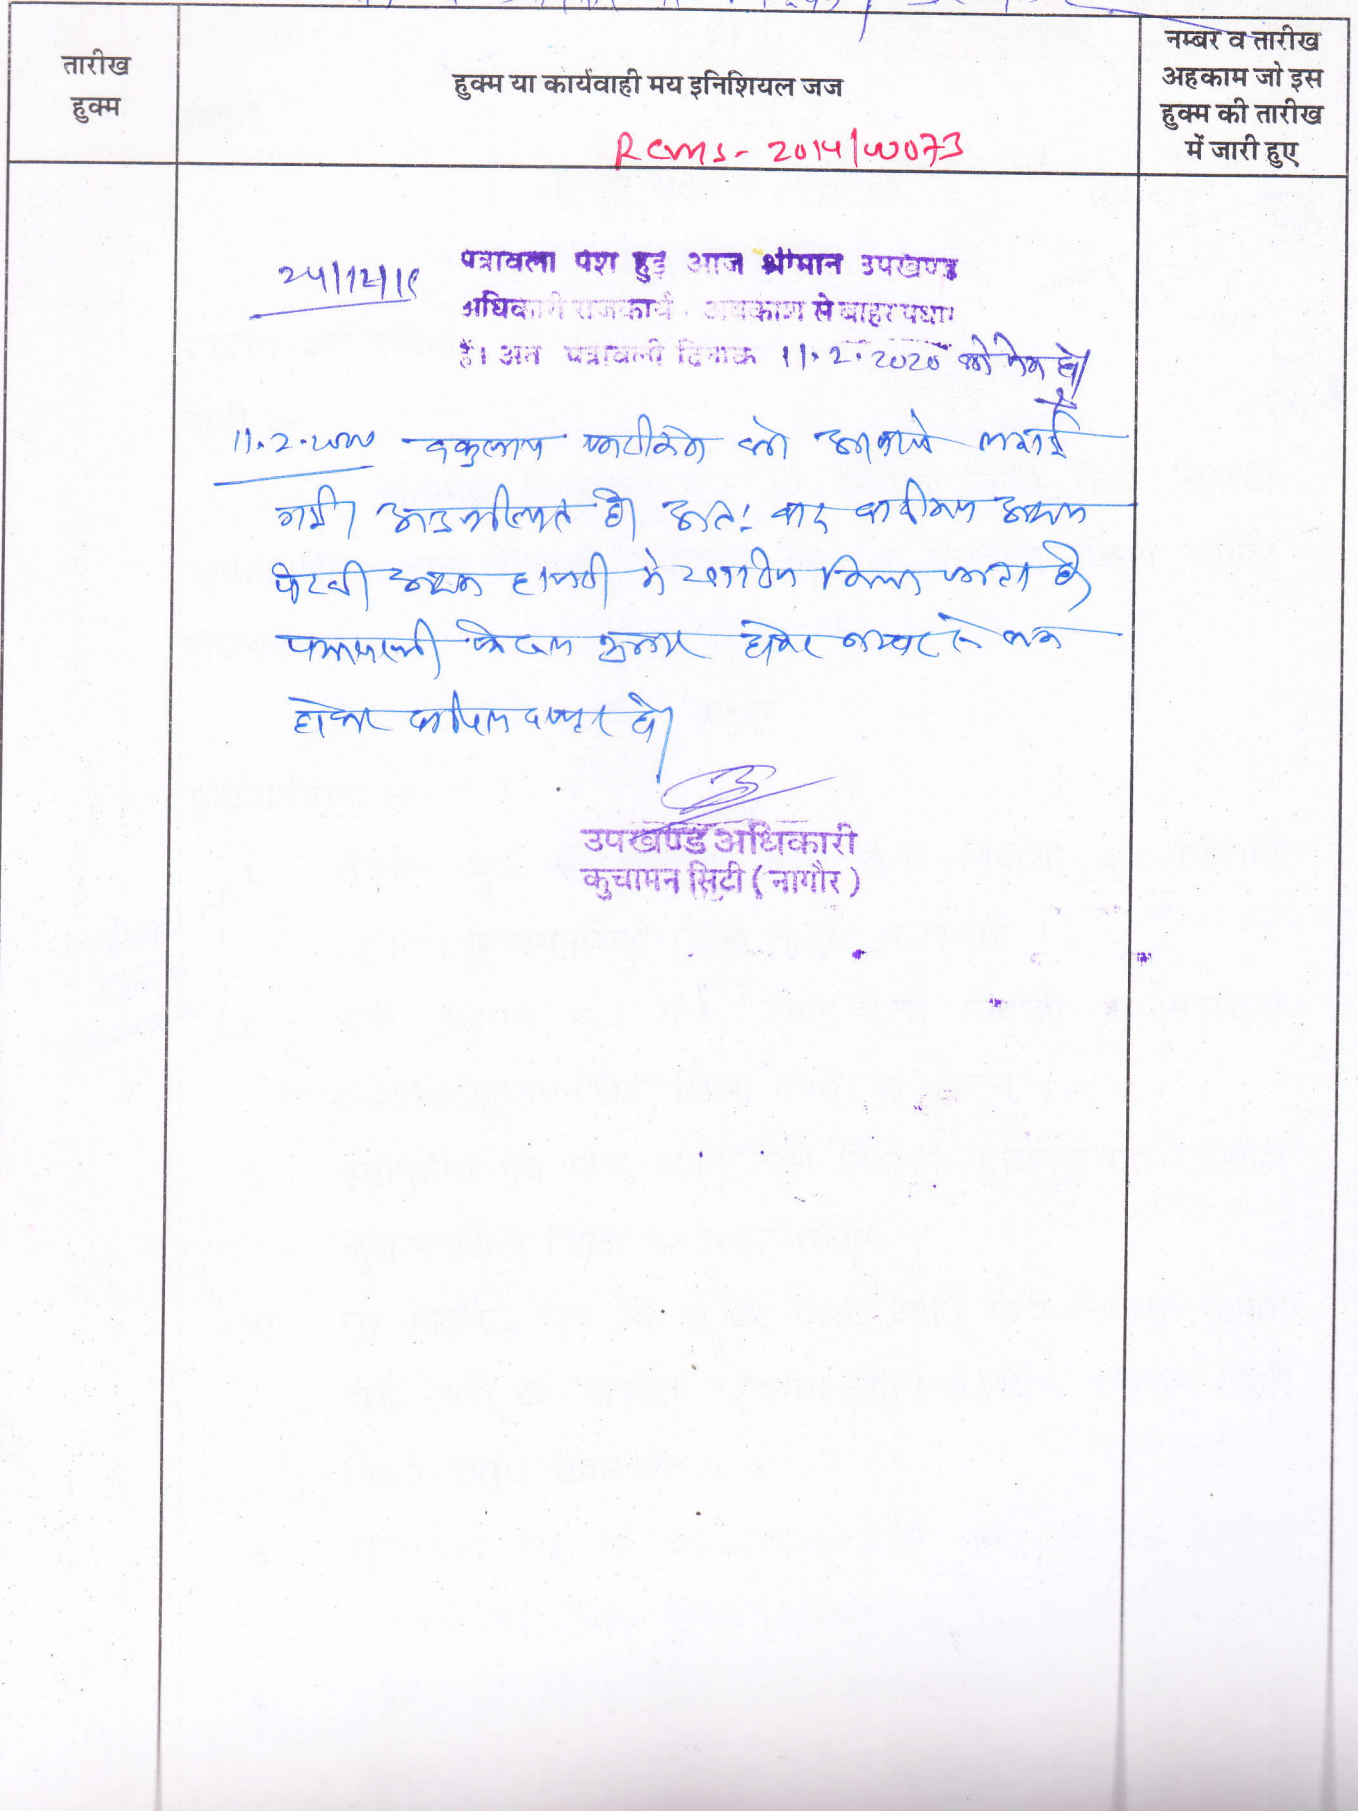 तारीख
हुक्म
हुक्म या कार्यवाही मय इनिशियल जज
नम्बर व तारीख
अहकाम जो इस
हुक्म की तारीख
में जारी हुए
RCMS - 2014/00073
पत्रावली पेश हुई आज श्रीमान उपखण्ड
अधिकारी राजकार्य अवकाश से बाहर पधारे
है। अत पत्रावली दिनांक 11.2.2020 को पेश हो।
11.2.2020 वकुलाय फरीकेन को आवाजे लगाई
गई। अनुपस्थित है। अतः वाद वादीगण अदम
पैरवी अदम हाजरी मे खारीज किया जाता है।
पत्रावली फैसल शुमार होकर नम्बर से कम
होकर दाखिल दफ्तर हो।
उपखण्ड अधिकारी
कुचामन सिटी (नागौर)